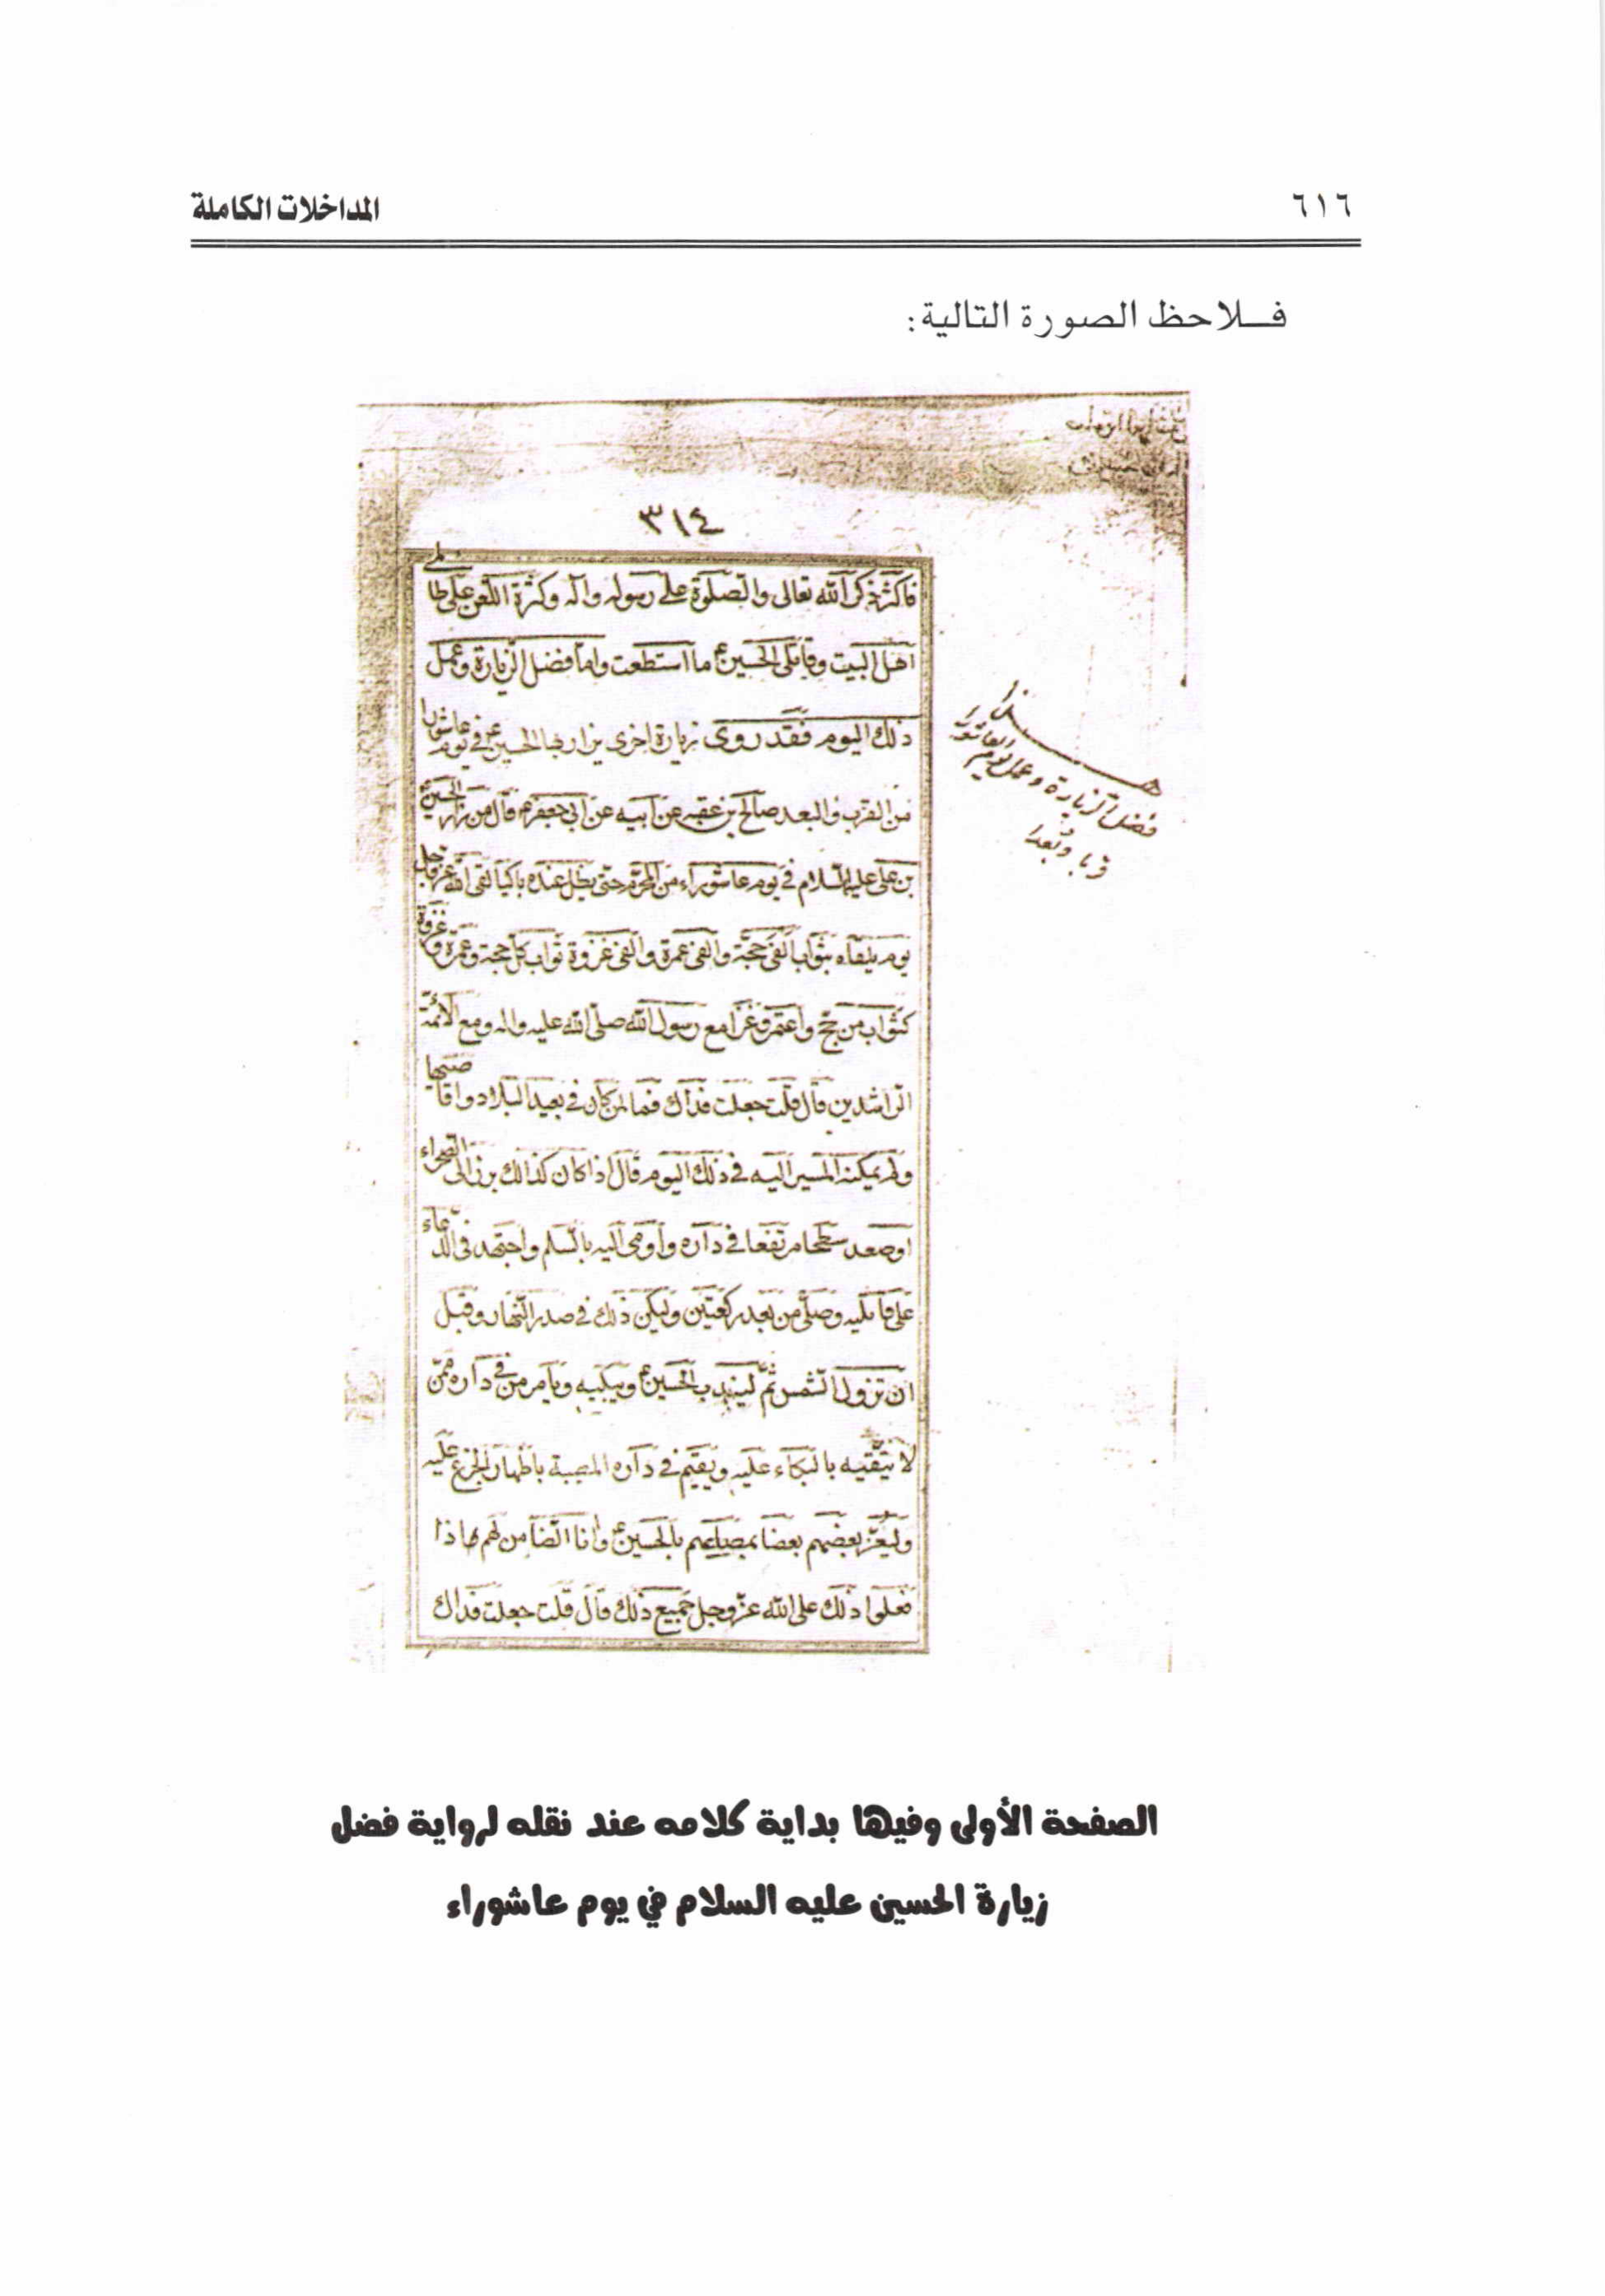 ٦١٦ المداخلات الكاملة
فـلاحظ الصورة التالية:
٣١٤
فاكثر ذكر الله تعالى والصلوة على رسوله وآله وكثرة اللعن على ظالمي
اهل البيت وقاتلى الحسين ع ما استطعت واما فضل الزيارة وعمل
ذلك اليوم فقد روى زيارة اخرى يزار بها الحسين ع في يوم عاشورا
من القرب والبعد صالح بن عقبه عن ابيه عن ابى جعفر ع قال من زار الحسين
بن على عليه السلام في يوم عاشوراء من المحرم حتى يظل عنده باكيا لقى الله عز وجل
يوم يلقاه بثواب الفى حجة والفى عمرة والفى غزوة ثواب كل حجة وعمرة وغزوة
كثواب من حج واعتمر وغزا مع رسول الله صلى الله عليه واله ومع الائمة
الراشدين قال قلت جعلت فداك فما لمن كان في بعيد البلاد واقاصيها
ولم يمكنه المسير اليه في ذلك اليوم قال اذا كان كذالك برز الى الصحراء
او صعد سطحا مرتفعا في داره واومى اليه بالسلم واجتهد في الدعاء
على قاتليه وصلى من بعد ركعتين وليكن ذلك في صدر النهار وقبل
ان تزول الشمس ثم ليندب الحسين ع ويبكيه ويامر من في داره ممن
لا يتقيه بالبكاء عليه ويقيم في داره المصيبة باظهار الجزع عليه
وليعز بعضهم بعضا بمصابهم بالحسين ع وانا الضامن لهم اذا
فعلوا ذلك على الله عز وجل جميع ذلك قال قلت جعلت فداك
هذا
فضل الزيارة وعمل يوم العاشورا
قربا وبعدا
الصفحة الأولى وفيها بداية كلامه عند نقله لرواية فضل
زيارة الحسين عليه السلام في يوم عاشوراء